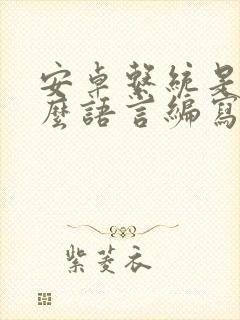 安卓繫統是
麼語言編寫
紫菱衣